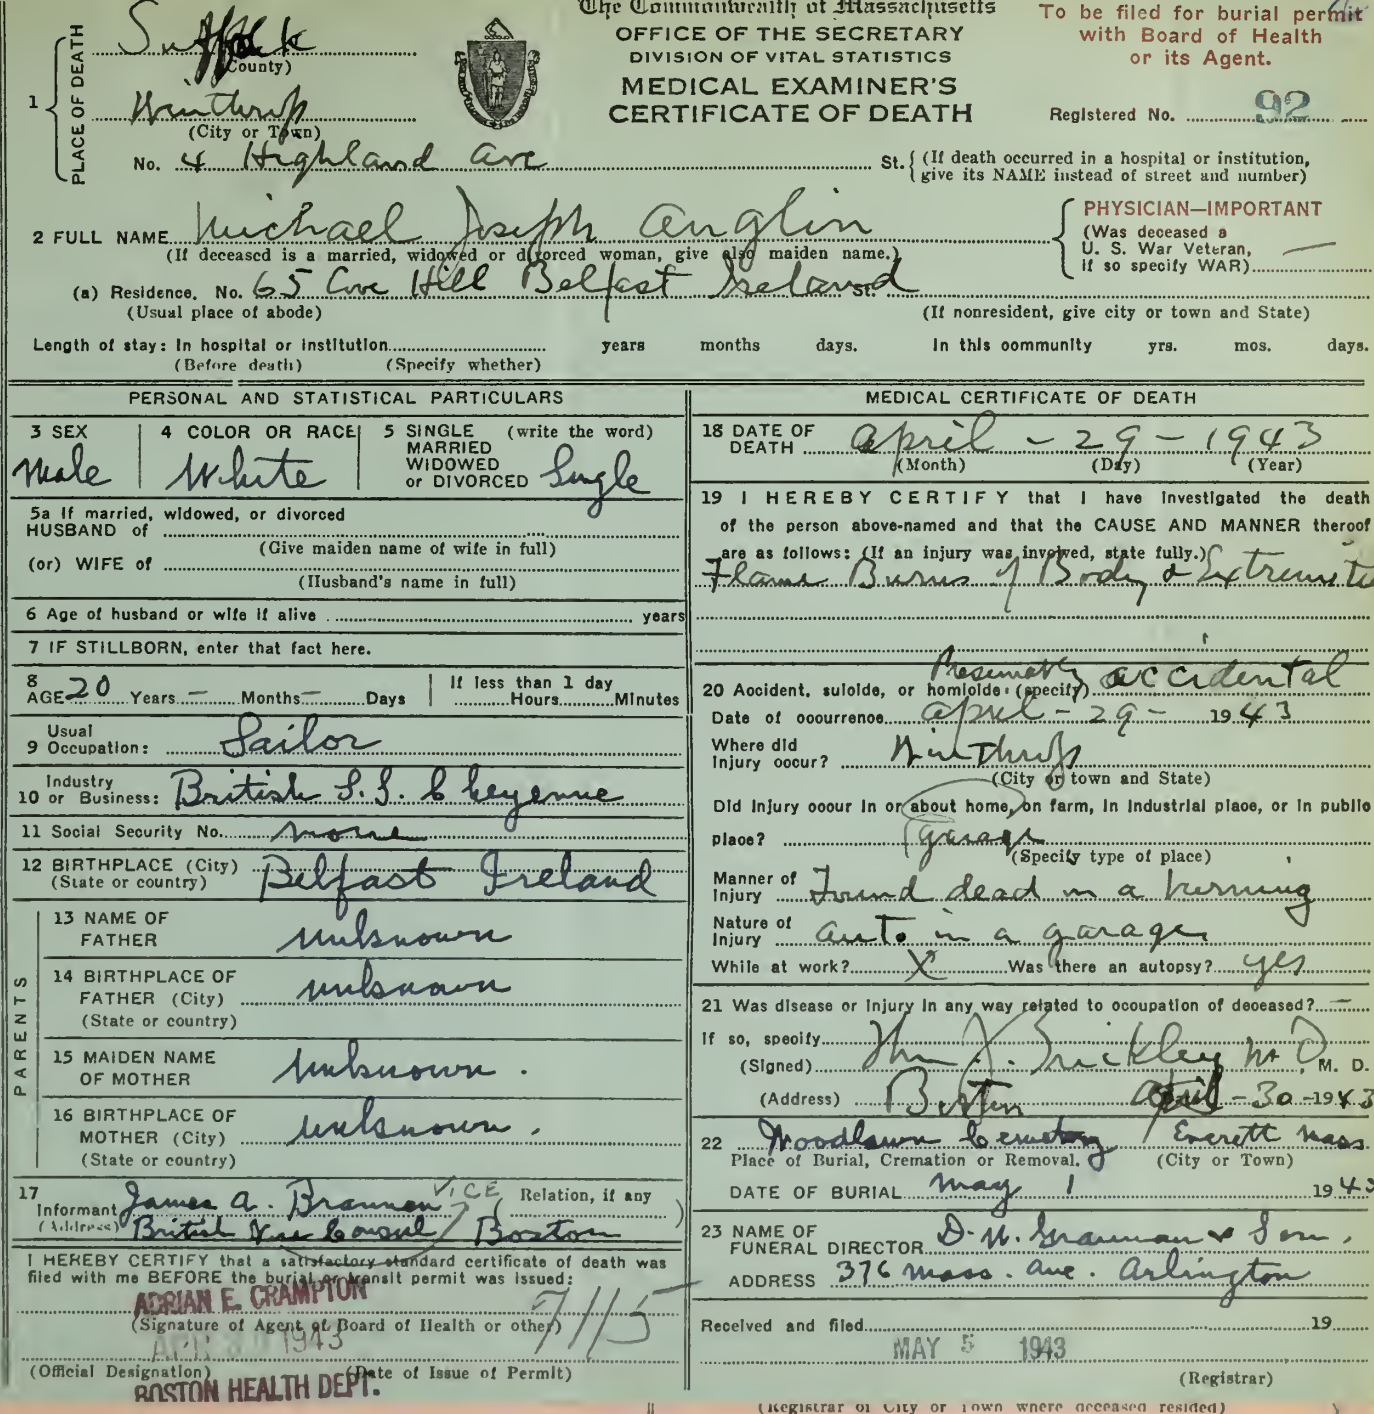 The Commonwealth of Massachusetts
OFFICE OF THE SECRETARY
DIVISION OF VITAL STATISTICS
MEDICAL EXAMINER'S
CERTIFICATE OF DEATH
To be filed for burial permit
with Board of Health
or its Agent.
Registered No. 92
1 PLACE OF DEATH
Suffolk
(County)
Winthrop
(City or Town)
No. 4 Highland Ave St. (If death occurred in a hospital or institution,
give its NAME instead of street and number)
2 FULL NAME Michael Joseph Anglin
(If deceased is a married, widowed or divorced woman, give also maiden name.)
PHYSICIAN—IMPORTANT
(Was deceased a
U. S. War Veteran,
if so specify WAR) —
(a) Residence. No. 65 Cave Hill Belfast Ireland St.
(Usual place of abode) (If nonresident, give city or town and State)
Length of stay: In hospital or institution years months days. In this community yrs. mos. days.
(Before death) (Specify whether)
PERSONAL AND STATISTICAL PARTICULARS
3 SEX
Male
4 COLOR OR RACE
White
5 SINGLE (write the word)
MARRIED
WIDOWED
or DIVORCED Single
5a If married, widowed, or divorced
HUSBAND of
(Give maiden name of wife in full)
(or) WIFE of
(Husband's name in full)
6 Age of husband or wife if alive years
7 IF STILLBORN, enter that fact here.
8 AGE 20 Years — Months — Days If less than 1 day
Hours Minutes
9 Usual Occupation: Sailor
10 Industry or Business: British S.S. Cheyenne
11 Social Security No. none
12 BIRTHPLACE (City) Belfast Ireland
(State or country)
PARENTS
13 NAME OF
FATHER unknown
14 BIRTHPLACE OF
FATHER (City) unknown
(State or country)
15 MAIDEN NAME
OF MOTHER unknown.
16 BIRTHPLACE OF
MOTHER (City) unknown.
(State or country)
17 Informant James A. Brannen VICE (Relation, if any)
(Address) British Vice Consul Boston
I HEREBY CERTIFY that a satisfactory standard certificate of death was
filed with me BEFORE the burial or transit permit was issued:
ADRIAN E. CRAMPTON
(Signature of Agent of Board of Health or other) 7115
APR 30 1943
(Official Designation) (Date of Issue of Permit)
BOSTON HEALTH DEPT.
MEDICAL CERTIFICATE OF DEATH
18 DATE OF
DEATH April - 29 - 1943
(Month) (Day) (Year)
19 I HEREBY CERTIFY that I have investigated the death
of the person above-named and that the CAUSE AND MANNER thereof
are as follows: (If an injury was involved, state fully.)
Flame Burns of Body & Extremitie
Presumably accidental
20 Accident, suicide, or homicide (specify)
Date of occurrence April - 29 - 1943
Where did
Injury occur? Winthrop
(City or town and State)
Did injury occur in or about home, on farm, in industrial place, or in public
place? garage
(Specify type of place)
Manner of
Injury Found dead in a burning
Nature of
Injury auto in a garage
While at work? X Was there an autopsy? yes
21 Was disease or injury in any way related to occupation of deceased? —
If so, specify
(Signed) Brickley M D, M. D.
(Address) Boston April - 30 - 1943
22 Woodlawn Cemetery Everett Mass
Place of Burial, Cremation or Removal. (City or Town)
DATE OF BURIAL May 1 1943
23 NAME OF
FUNERAL DIRECTOR D. W. Grannan & Son.
ADDRESS 376 Mass. Ave. Arlington
Received and filed 19
MAY 5 1943
(Registrar)
(Registrar of City or Town where deceased resided)